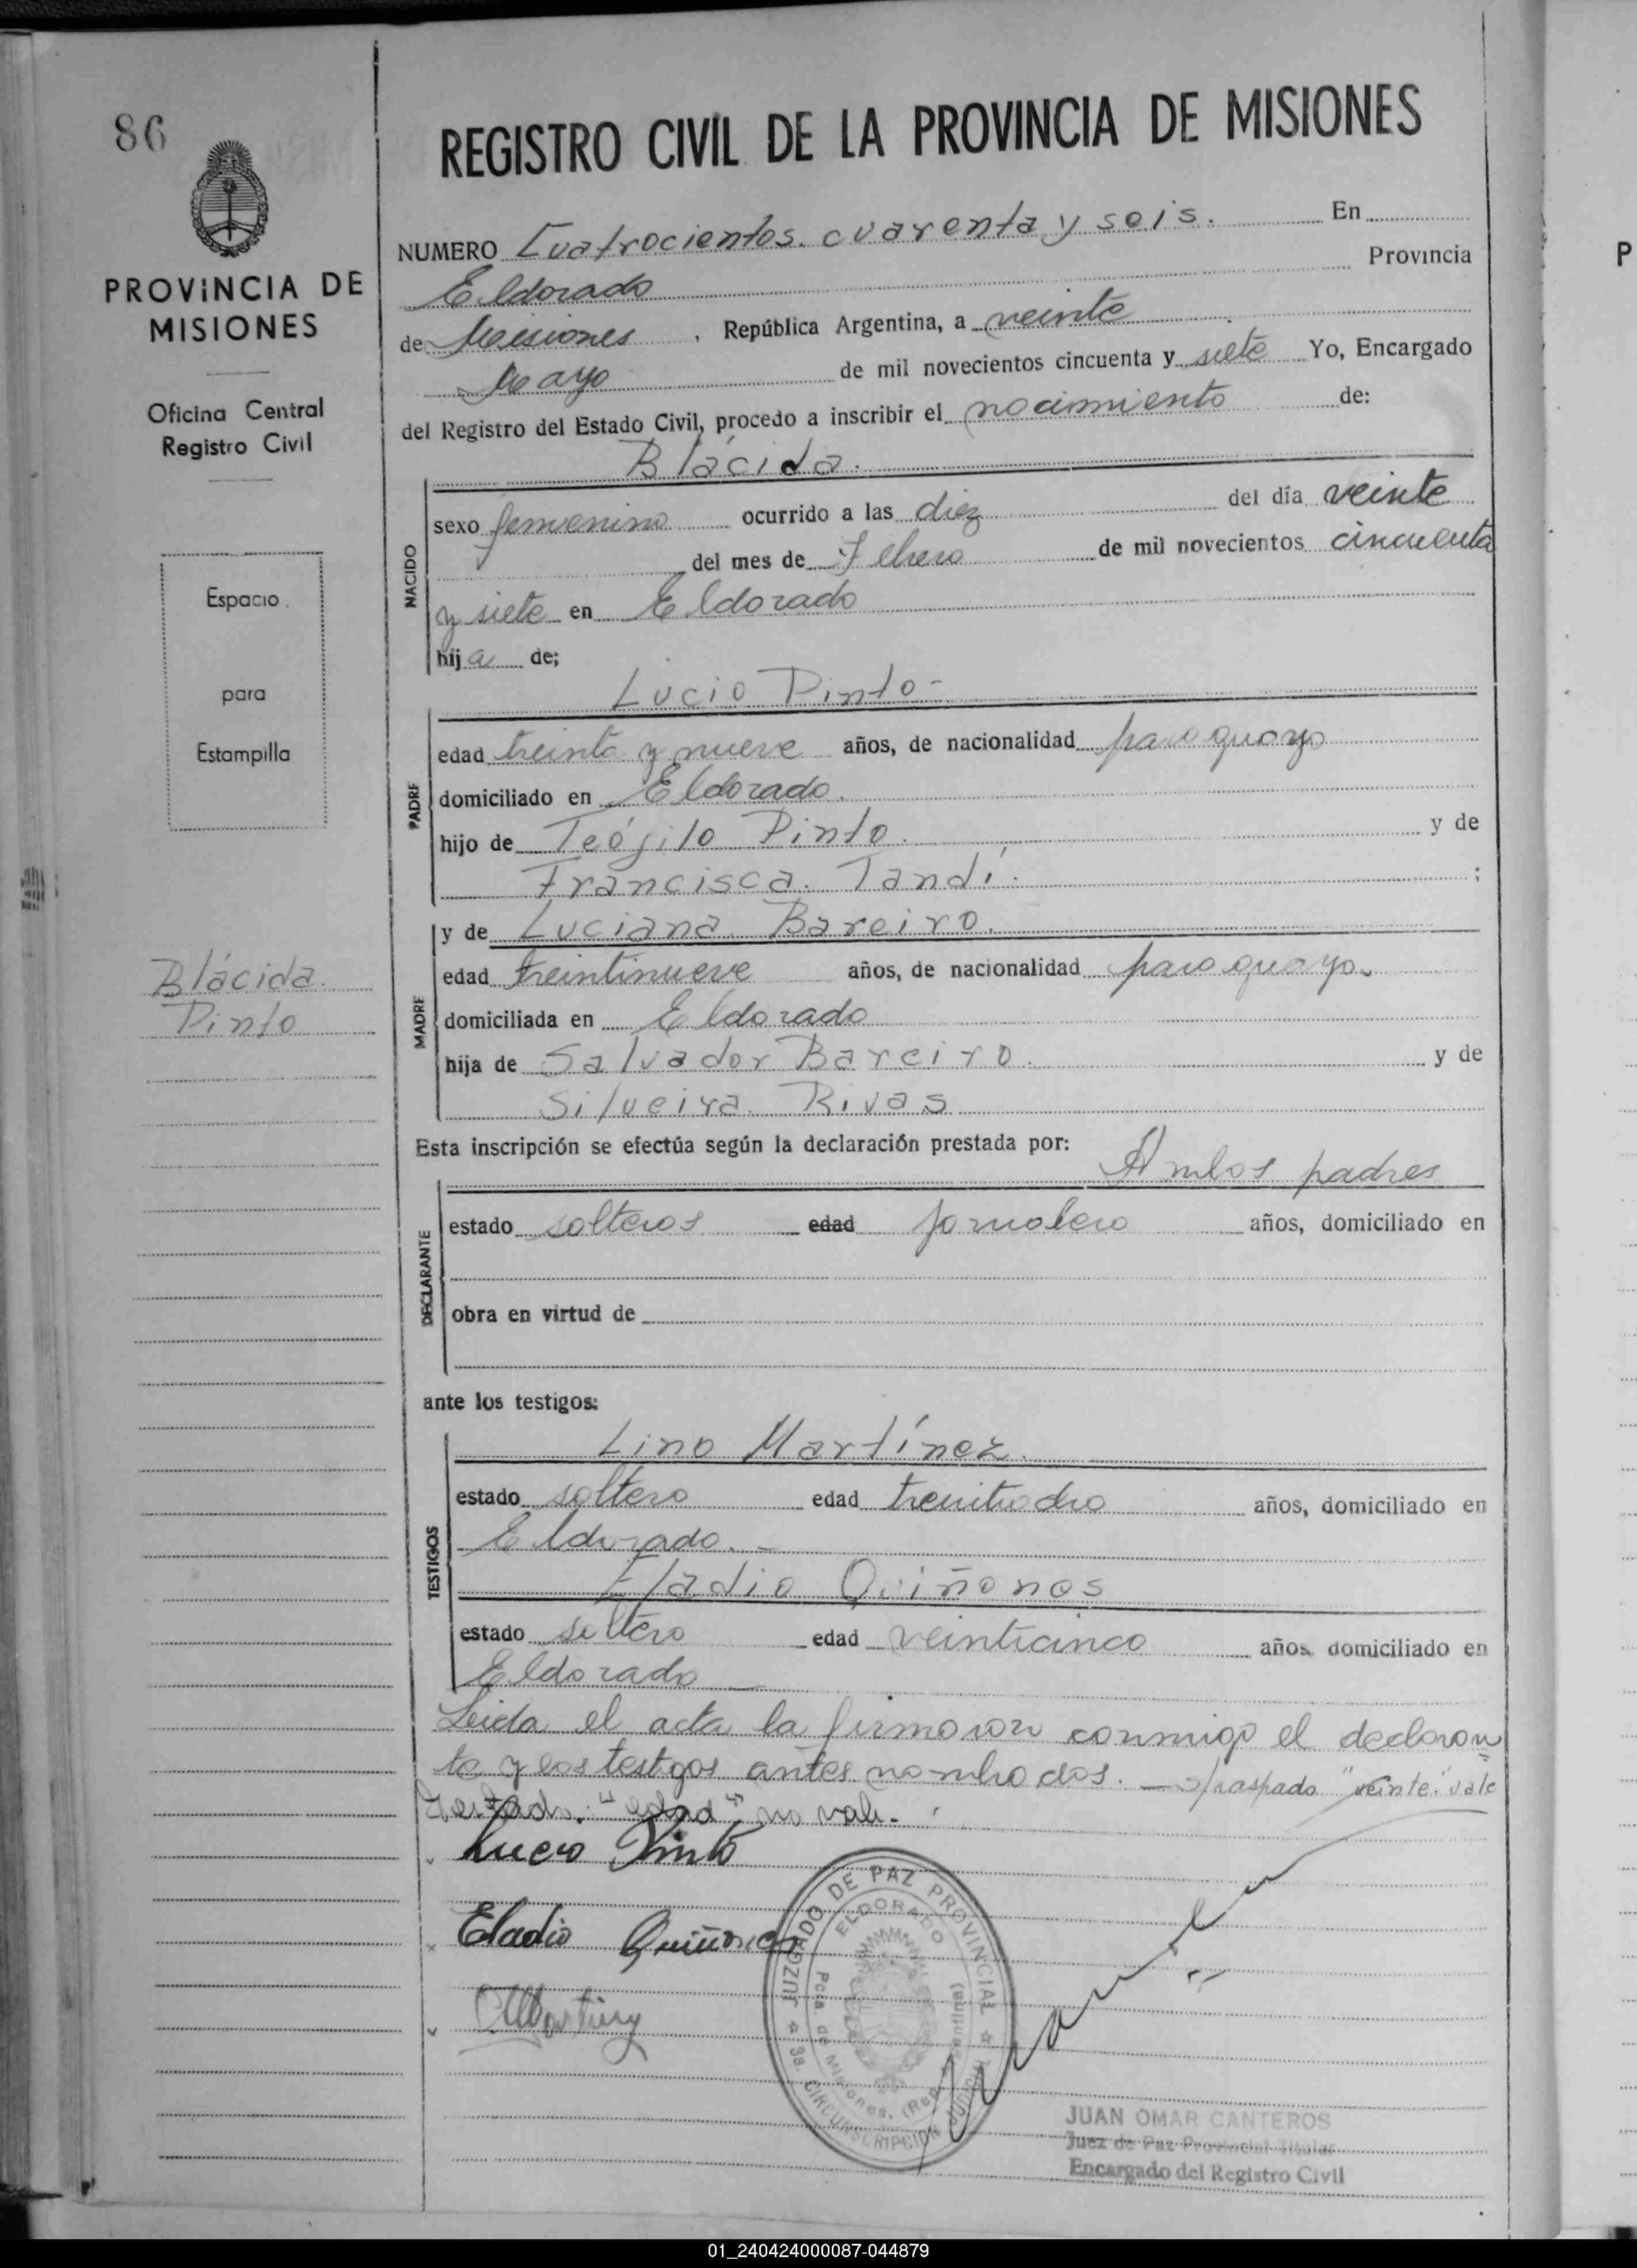 86
PROVINCIA DE
MISIONES
Oficina Central
Registro Civil
Espacio
para
Estampilla
Blácida
Pinto
REGISTRO CIVIL DE LA PROVINCIA DE MISIONES
NUMERO Cuatrocientos cuarenta y seis. En
Eldorado Provincia
de Misiones, República Argentina, a veinte
Mayo de mil novecientos cincuenta y siete Yo, Encargado
del Registro del Estado Civil, procedo a inscribir el nacimiento de:
Blácida.
NACIDO
sexo femenino ocurrido a las diez del día veinte
del mes de Febrero de mil novecientos cincuenta
y siete en Eldorado
hija de;
Lucio Pinto-
PADRE
edad treinta y nueve años, de nacionalidad paraguayo
domiciliado en Eldorado.
hijo de Teófilo Pinto. y de
Francisca Tandí. ;
y de Luciana Bareiro.
MADRE
edad treintinueve años, de nacionalidad paraguaya.
domiciliada en Eldorado
hija de Salvador Bareiro. y de
Silveira Rivas
Esta inscripción se efectúa según la declaración prestada por:
Ambos padres
DECLARANTE
estado solteros edad jornalero años, domiciliado en
obra en virtud de
ante los testigos:
Lino Martínez.
TESTIGOS
estado soltero edad años, domiciliado en
Eldorado. -
Eladio Quiñones
estado soltero edad veinticinco años, domiciliado en
Eldorado —
Leida el acta la firmaron conmigo el declaran
te y los testigos antes nombrados. — s/raspado "veinte" vale
Testado: "edad" no vale.
Lucio Pinto
Eladio Quiñones
Martinez
JUZGADO DE PAZ PROVINCIAL
ELDORADO
Pcia de Misiones. (Rep. Argentina)
3a CIRCUNSCRIPCION JUDICIAL
JUAN OMAR CANTEROS
Juez de Paz Provincial Titular
Encargado del Registro Civil
P
01_240424000087-044879